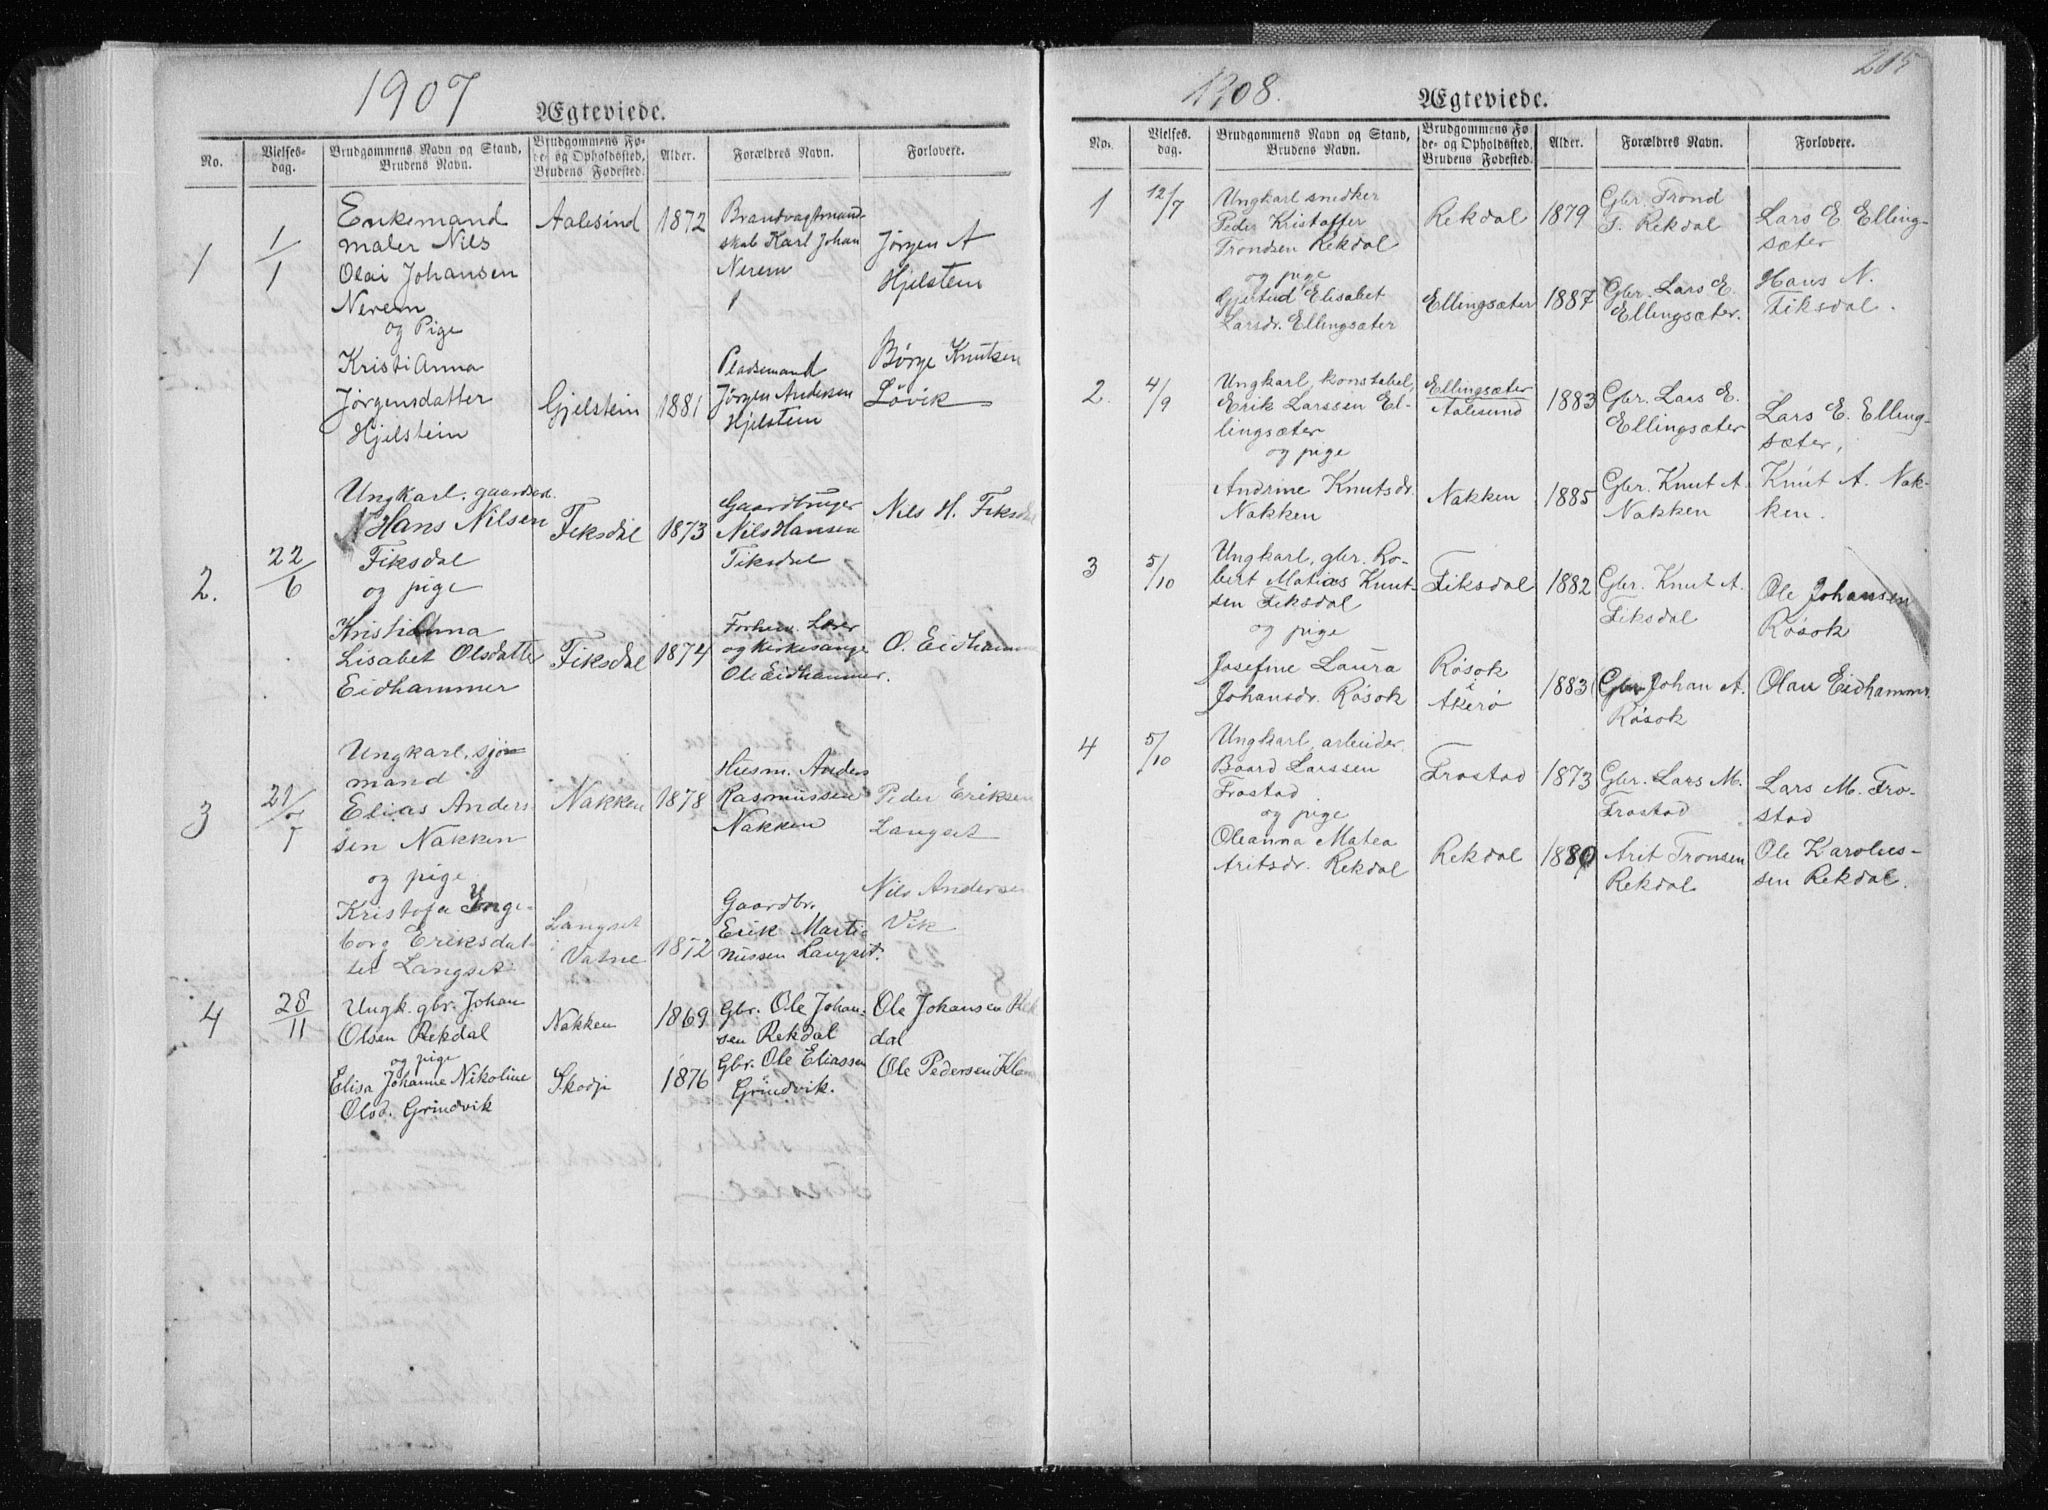 1907
Ægteviede.
No.
Vielses-
dag.
Brudgommens Navn og Stand,
Brudens Navn.
Brudgommens Fø-
de- og Opholdssted,
Brudens Fødested.
Alder.
Forældres Navn.
Forlovere.
1
1/1
Enkemand
maler Nils
Olai Johansen
Nerem
og Pige
Kristianna
Jørgensdatter
Hjelstein
Aalesund
Gjelstein
1872
1881
Brandvagtmand-
skab Karl Johan
Nerem
Pladsemand
Jørgen Andersen
Hjelstein
Jørgen A
Hjelstein
Børge Knutsen
Løvik
2.
22/6
Ungkarl, gaardbr.
Hans Nilsen
Fiksdal
og pige
Kristianna
Lisabet Olsdatter
Eidhammer
Fiksdal
Fiksdal
1873
1874
Gaardbruger
Nils Hansen
Fiksdal
Forhen. Lærer
og Kirkesanger
Ole Eidhammer.
Nils H. Fiksdal
O. Eidhammer
3
21/7
Ungkarl, sjø-
mand
Elias Anders-
sen Nakken
og pige
Kristofa Inge-
borg Eriksdat-
ter Langset
Nakken
Langset
i
Vatne
1878
1872
Husm. Anders
Rasmussen
Nakken
Gaardbr.
Erik Marti-
nussen Langset.
Peder Eriksen
Langset
Nils Andersen
Vik
4
28/11
Ungk. gbr. Johan
Olsen Rekdal
og pige
Elisa Johanne Nikoline
Olsd. Grindvik
Nakken
Skodje
1869
1876
Gbr. Ole Johan-
sen Rekdal
Gbr. Ole Eliassen
Grindvik.
Ole Johansen Rek
dal
Ole Pedersen
1908.
Ægteviede.
215
No.
Vielses-
dag.
Brudgommens Navn og Stand,
Brudens Navn.
Brudgommens Fø-
de- og Opholdssted,
Brudens Fødested.
Alder.
Forældres Navn.
Forlovere.
1
12/7
Ungkarl snedker
Peder Kristoffer
Trondsen Rekdal
og pige
Gjertrud Elisabet
Larsdr. Ellingsæter
Rekdal
Ellingsæter
1879
1887
Gbr. Trond
T. Rekdal
Gbr. Lars E.
Ellingsæter.
Lars E Elling-
sæter
Hans N.
Fiksdal.
2.
4/9
Ungkarl, konstabel,
Erik Larssen El-
lingsæter
og pige
Andrine Knutsdr.
Nakken
Ellingsæter
Aalesund
Nakken
1883
1885
Gbr. Lars E.
Ellingsæter
Gbr. Knut A.
Nakken
Lars E. Elling-
sæter,
Knut A. Nak-
ken.
3
5/10
Ungkarl, gbr. Ro-
bert Matias Knut-
sen Fiksdal
og pige
Josefine Laura
Johansdr. Røsok
Fiksdal
Røsok
i
Akerø
1882
1883
Gbr. Knut A.
Fiksdal
Gbr. Johan A.
Røsok
Ole Johansen
Røsok
Olau Eidhammer.
4
5/10
Ungkarl, arbeider.
Baard Larssen
Frostad
og pige
Oleanna Matea
Aritsdr. Rekdal
Frostad
Rekdal
1873
1880
Gbr. Lars M.
Frostad
Arit Tronsen
Rekdal
Lars M. Fro-
stad
Ole Karolius-
sen Rekdal.